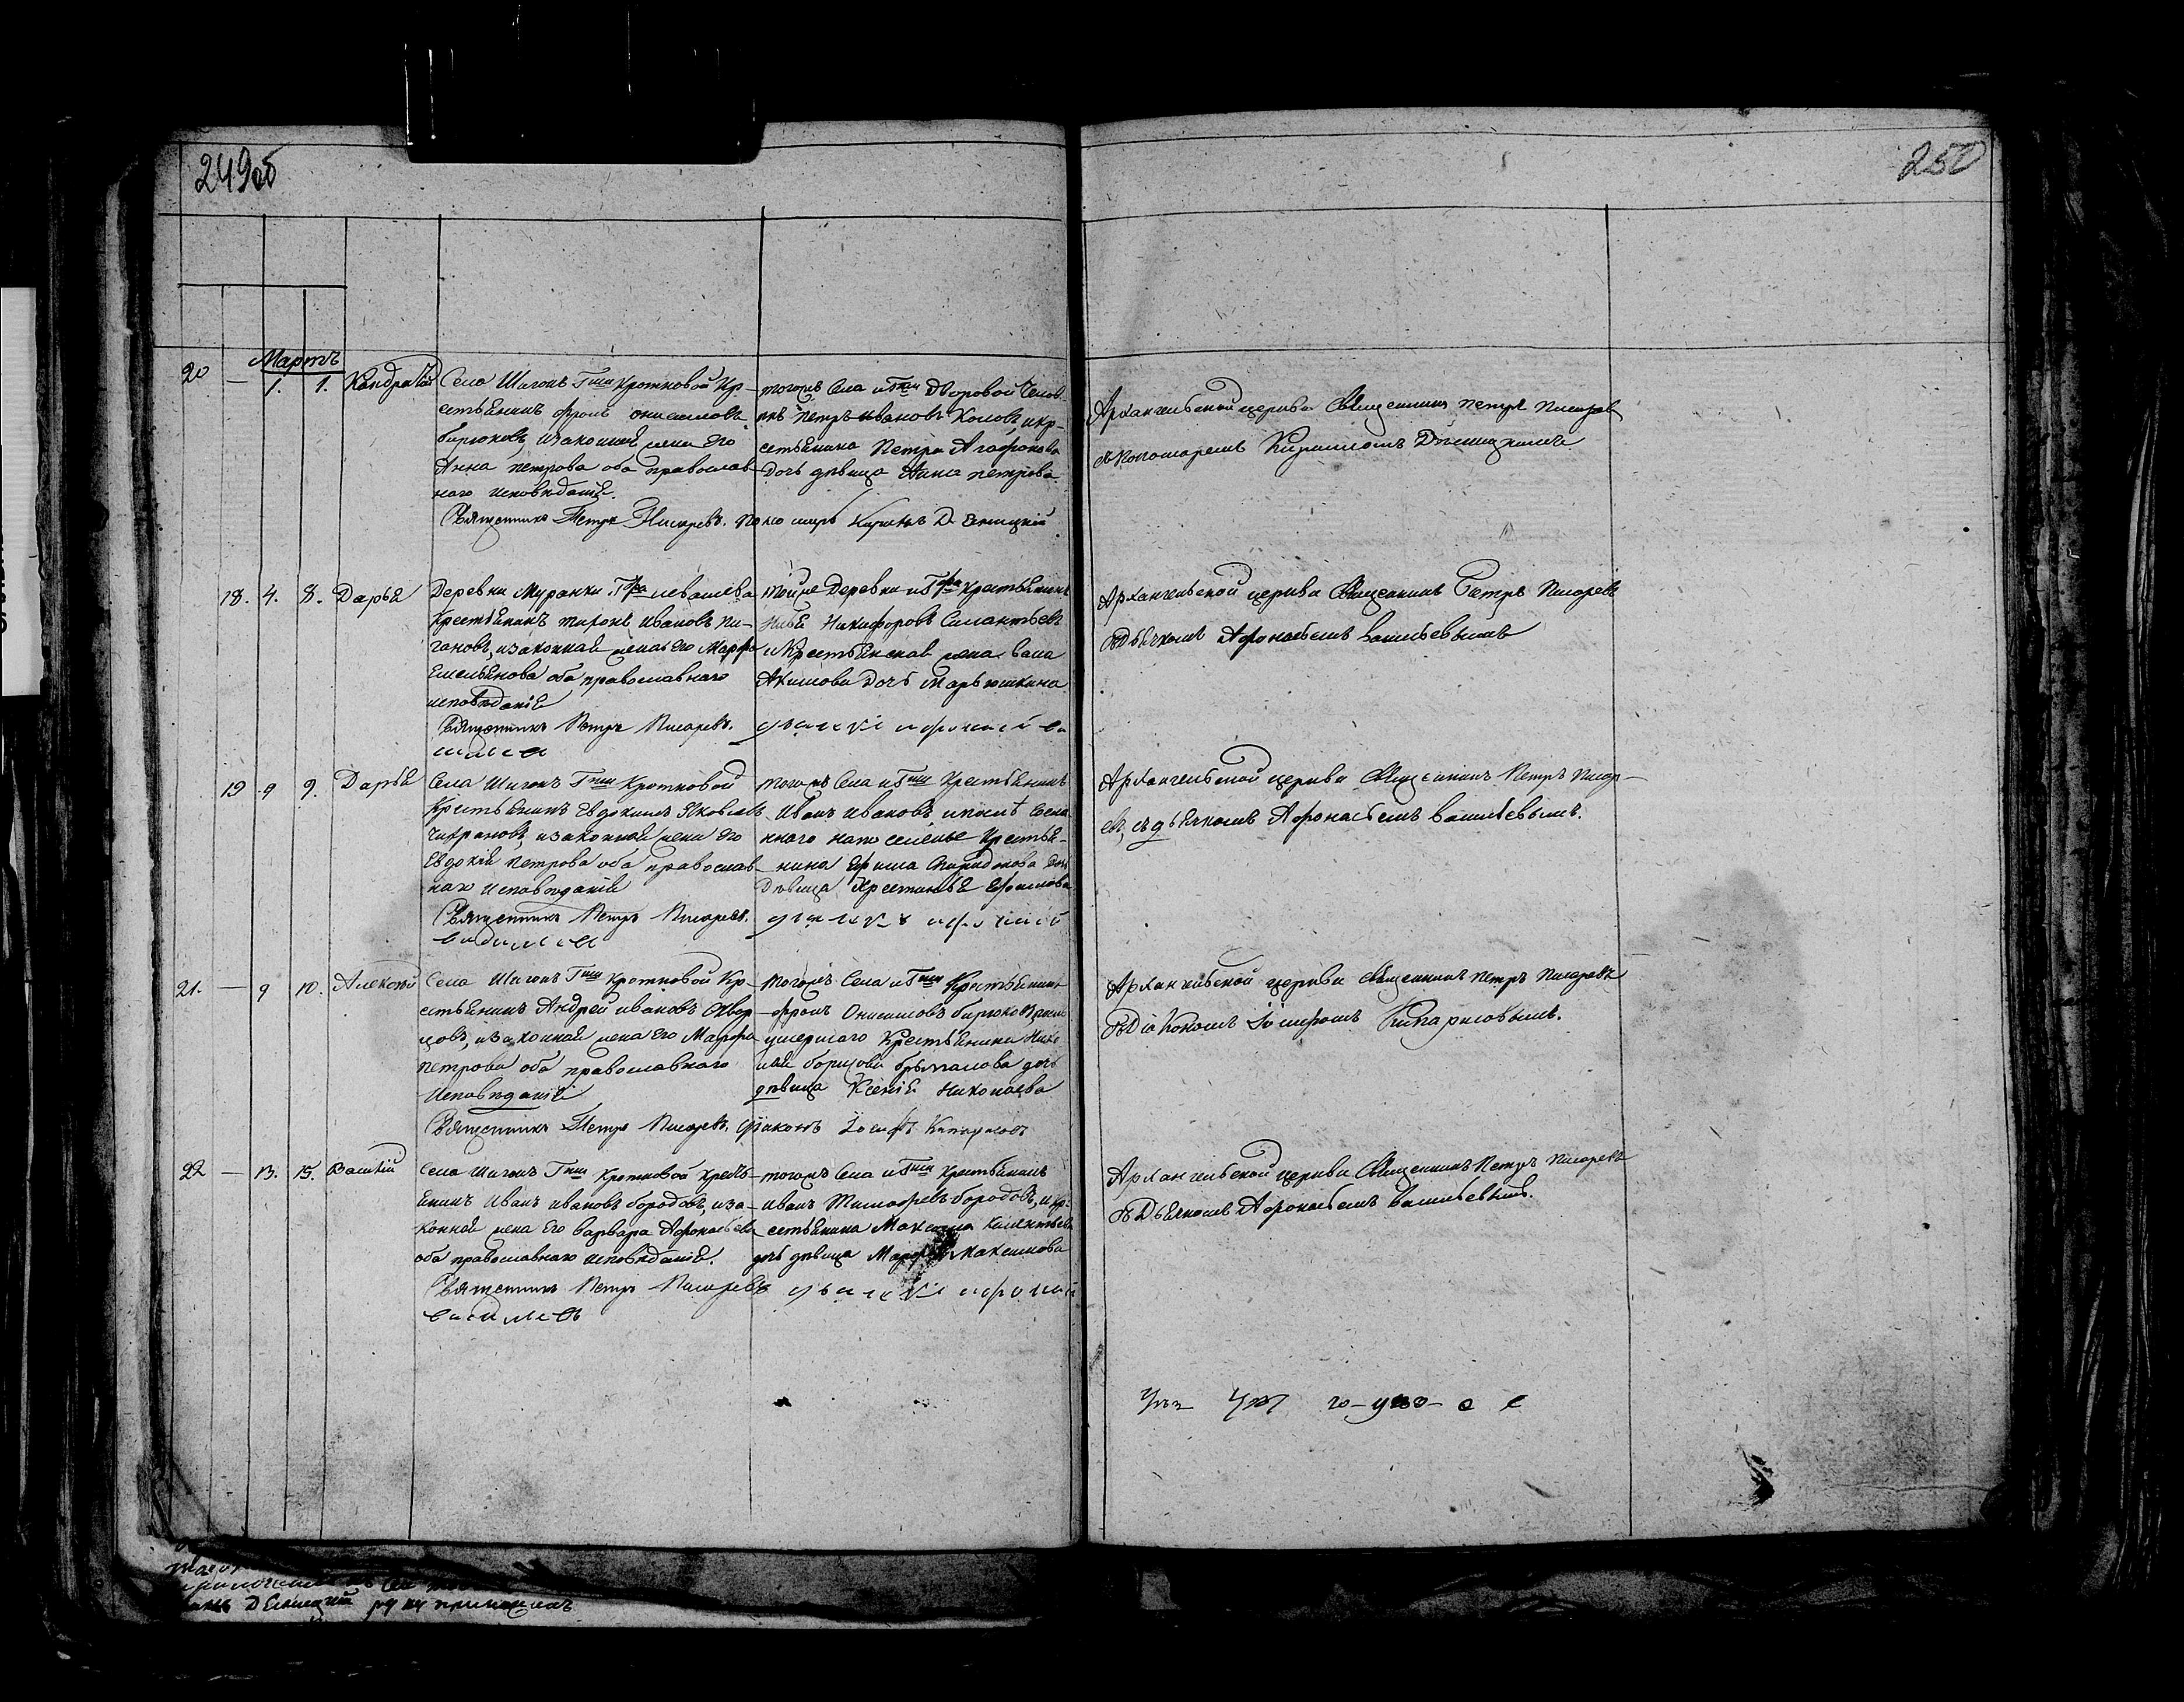 249об
250
Мартъ
20 — 1. 1. Кандратій
Села Шигонъ Гпжи Кротковой Кр-
естьянинъ Фролъ Онисимовъ
бирюковъ, изаконная жена Его
Анна петрова оба православ-
наго исповѣданія.
Священникъ Петръ Писаревъ. Пономарь
тогожъ Села и Гпжи Дворовой Челов-
ѣкъ Петръ Ивановъ Косовъ, икр-
естьянина Петра Агафонова
Дочь дѣвица Анна петрова
Архангельской церкви Священникъ Петръ Писарев
съ Пономаремъ
18. 4. 8. Дарья
Деревни Муранки Гра левашева
Крестьянинъ Тихонъ Ивановъ Ци-
гановъ, изаконная жена Его Марфа
Емельянова оба православнаго
исповѣданія
Священникъ Петръ Писаревъ.
тойже Деревни и Гра крестьянинъ
Илья Никифоровъ Силантьевъ
и Крестьянская жена
Акимова Дочь Марьюшкина
дьячкъ афонасей ва
силиев
Архангельской церкви Священникъ Петръ Писаревъ
съ Дьячкомъ Афонасьемъ Васильевымъ
19 9 9. Дарья
Села Шигонъ Гпжи Кротковой
Крестьянинъ Евдокимъ Яковлевъ
изаконная жена Его
Евдокія петрова оба православ-
наго исповѣданія
Священникъ Петръ Писаревъ.
тогожъ Села и Гпжи Крестьянинъ
Иванъ Ивановъ,
Крестья-
нина Ефима Спиридонова Дочь
Дѣвица Крестинья Ефимова
дьячкъ афонасей
василиев
Архангельской церкви Священникъ Петръ Писар-
евъ, съ дьячкомъ Афонасьемъ васильевымъ.
21. — 9 10. Алексѣй
Села Шигонъ Гпжи Кротковой Кр-
естьянинъ Андрей ивановъ Сквор-
цовъ, изаконная жена Его Марфа
петрова оба православнаго
Исповѣданія
Священникъ Петръ Писаревъ. Діаконъ Іосифъ Кипарисовъ
тогожъ Села и Гпжи Крестьянинъ
Фролъ Онисимовъ бирюковъ,
умершаго Крестьянина Нико-
лая борисова дочь
дѣвица Ксенія Николаева
Архангельской церкви Священникъ петръ Писаревъ
съ Діакономъ Іосифомъ Кипарисовымъ.
22 — 13. 15. Василій
Села Шигонъ Гпжи Кротковой Кресть-
янинъ Иванъ Ивановъ бородовъ, иза-
конная жена Его варвара Афонасьева
оба православнаго исповѣданія.
Священникъ Петръ Писаревъ
тогожъ Села и Гпжи Крестьянинъ
иванъ Тимофѣевъ бородовъ, и кр-
естьянина Максима
дочь дѣвица Марфа Максимова
дьячкъ афонасей
василиевъ
Архангельской церкви Священникъ Петръ Писаревъ
съ Дьячкомъ Афонасьемъ Васильевымъ.
руку приложилъ